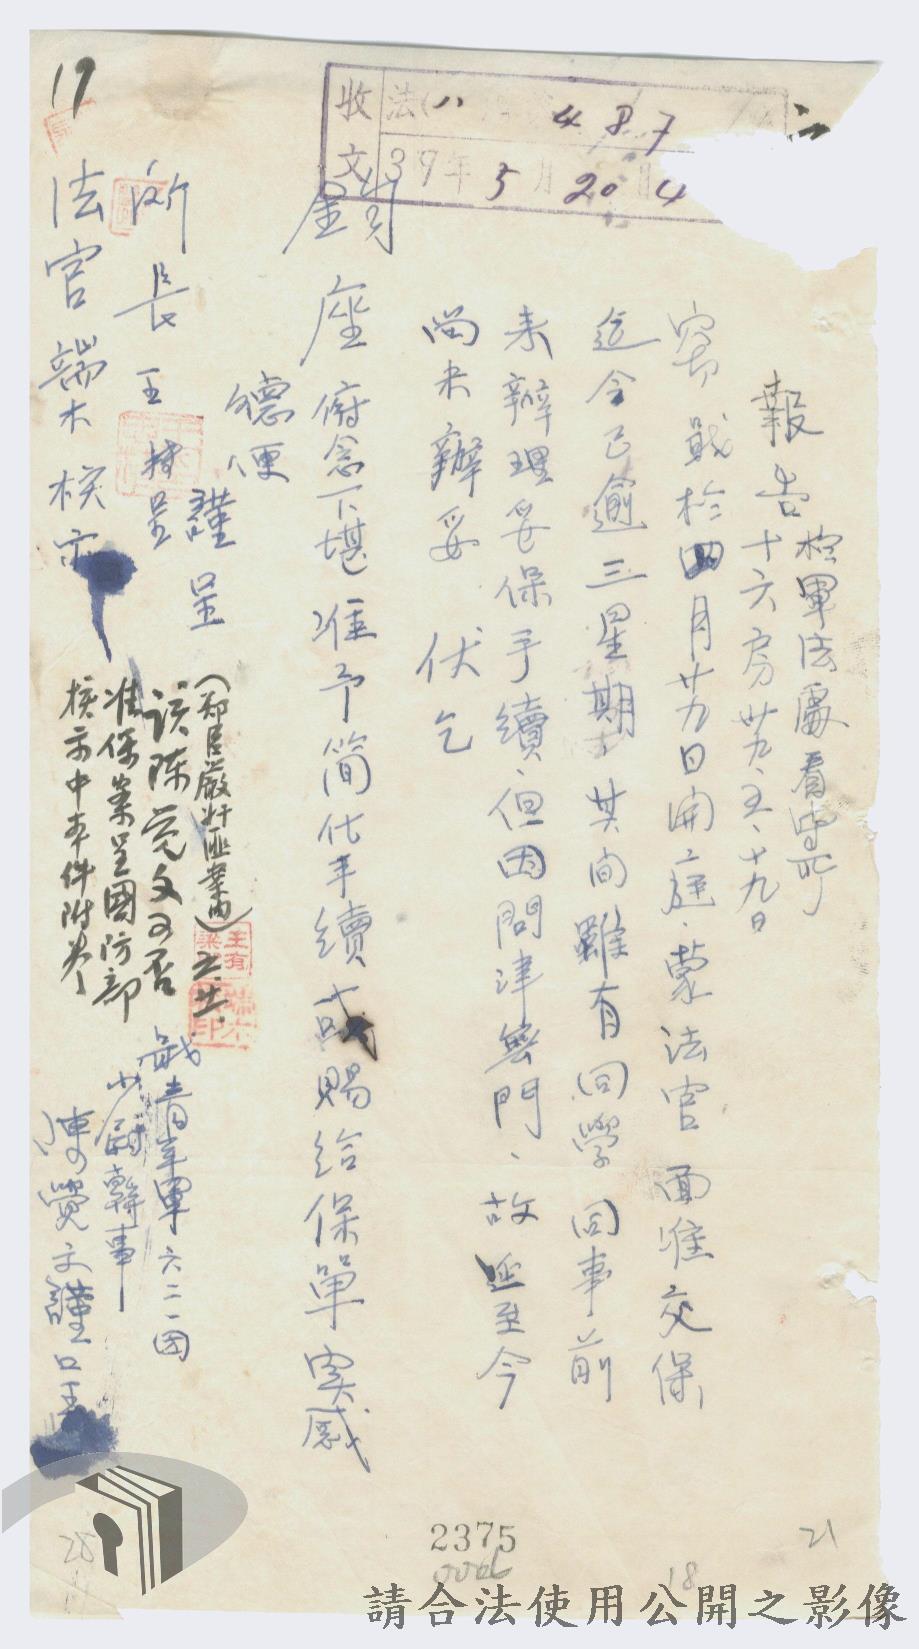 17
收文 法( 八 487
39年5月20日4
報告 於軍法處看守所
十六房 卅九、五、十九日
竊職於四月廿九日開庭、蒙法官面准交保
迄今已逾三星期、其間雖有同學同事前
來辦理妥保手續、但因問津無門、故延至今
尚未辦妥 伏乞
鈞座 俯念下堪 准予简化手續 或賜給保單 实感
德便
謹呈
所長王 轉呈
法官端木 核示
(郑臣嚴奸匪案內)
该陈觉文可否
准保案呈國防部
核示中本件附卷
五.廿.
王有梁
端木 印
職青年軍六二一团
少尉幹事
陳覺文謹呈
2375
0066
18
21
28
請合法使用公開之影像